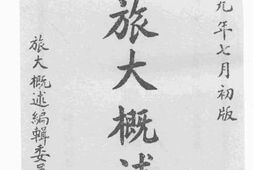 九年七月初版
旅大概述
旅大概述編輯委員